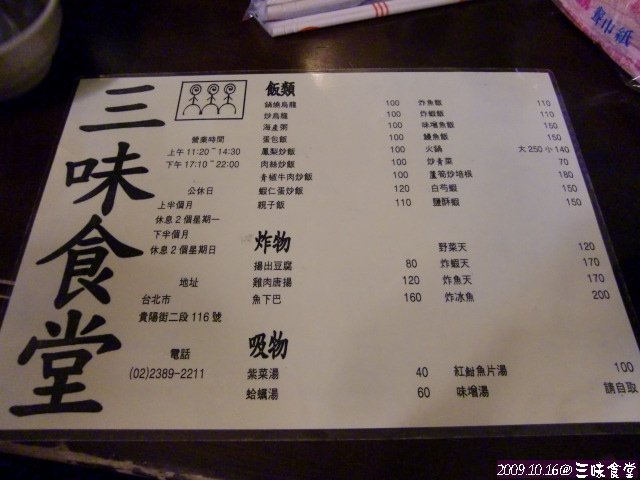 三味食堂
營業時間
上午 11:20~14:30
下午 17:10~22:00
公休日
上半個月
休息 2 個星期一
下半個月
休息 2 個星期日
地址
台北市
貴陽街二段 116 號
電話
(02)2389-2211
飯類
鍋燒烏龍 100
炒烏龍 100
海產粥 100
蛋包飯 100
鳳梨炒飯 100
肉絲炒飯 100
青椒牛肉炒飯 100
蝦仁蛋炒飯 120
親子飯 110
炸魚飯 110
炸蝦飯 110
味噌魚飯 150
鰻魚飯 150
火鍋 大 250 小 140
炒青菜 70
蘆筍炒培根 180
白芍蝦 150
鹽酥蝦 150
炸物
揚出豆腐 80
雞肉唐揚 120
魚下巴 160
野菜天 120
炸蝦天 170
炸魚天 170
炸冰魚 200
吸物
紫菜湯 40
蛤蠣湯 60
紅魽魚片湯 100
味噌湯 請自取
紙巾
2009.10.16@三味食堂